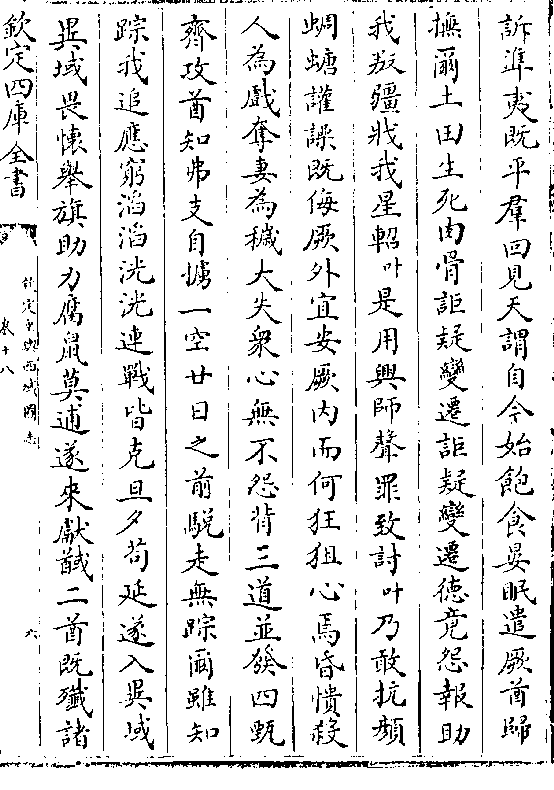 訴準夷既平羣回見天謂自今始飽食晏眠遣厥酋歸
撫爾土田生死肉骨詎疑變遷詎疑變遷德竟怨報助
我叛疆戕我星軺叶是用興師聲罪致討叶乃敢抗顏
蜩螗讙譟既侮厥外宜安厥内而何狂狙心焉昏憒殺
人為戲奪妻為穢大失衆心無不怨背三道並發四甄
齊攻酋知弗支自攄一空廿日之前駾走無踪爾雖知
踪我追應窮滔滔洸洸連戰皆克旦夕苟延遂入異域
異域畏懷舉旗助力腐鼠莫逋遂來獻馘二酋既殱諸
欽定四庫全書
欽定皇輿西域圖志
卷十八